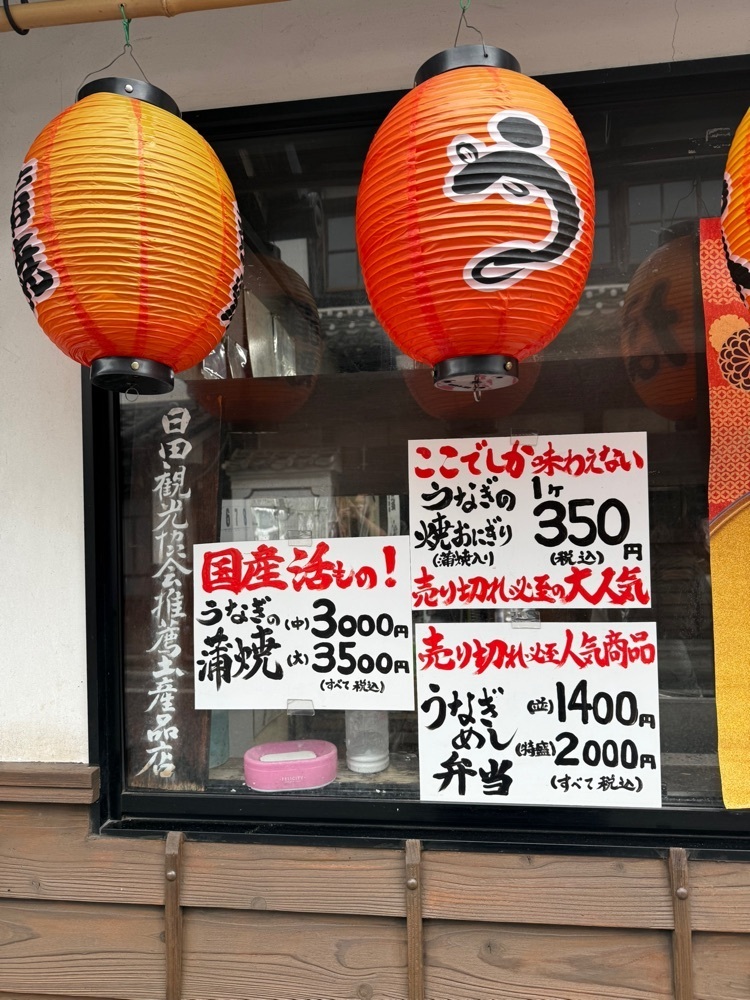 う
日田観光協会推薦土産品店
国産活もの!
うなぎの
蒲焼
(中)3000円
(大)3500円
(すべて税込)
ここでしか味わえない
うなぎの
焼おにぎり
(蒲焼入り)
1ヶ
350円
(税込)
売り切れ必至の大人気
売り切れ必至人気商品
うなぎ
めし
弁当
(並)1400円
(特盛)2000円
(すべて税込)